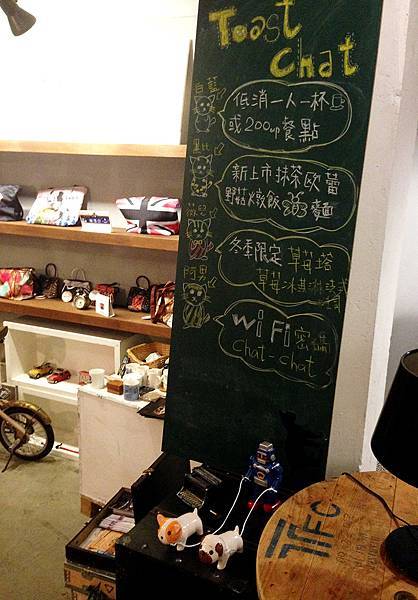 Toast
chat
白藍
低消一人一杯
或200up餐點
黑比
新上市抹茶歐蕾
野菇燉飯 麵
冬季限定 草莓塔
草莓冰淇淋
阿男
wiFi密碼
Chat-chat
TFC